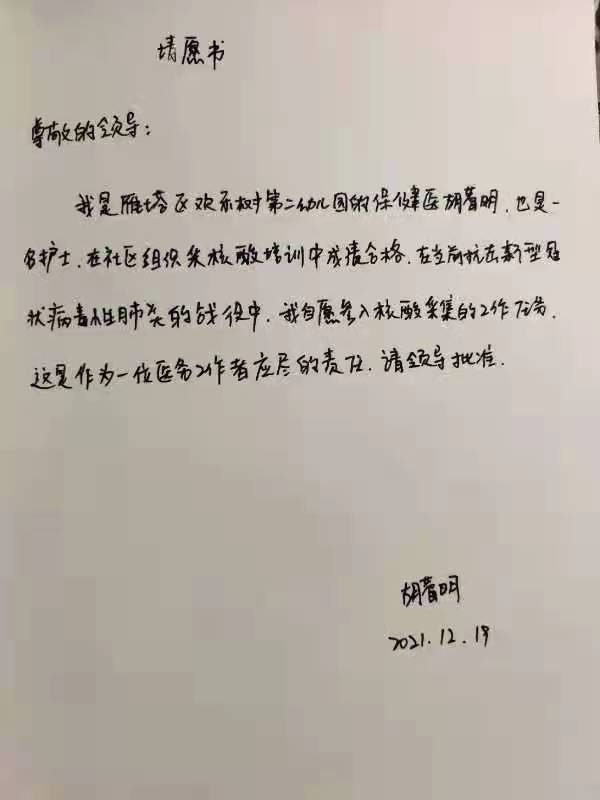 请愿书
尊敬的领导：
我是雁塔区欢乐树第二幼儿园的保健医胡着明，也是一
名护士，在社区组织采核酸培训中成绩合格，在当前抗击新型冠
状病毒性肺炎的战役中，我自愿参入核酸采集的工作任务，
这是作为一位医务工作者应尽的责任，请领导批准．
胡着明
2021.12.19